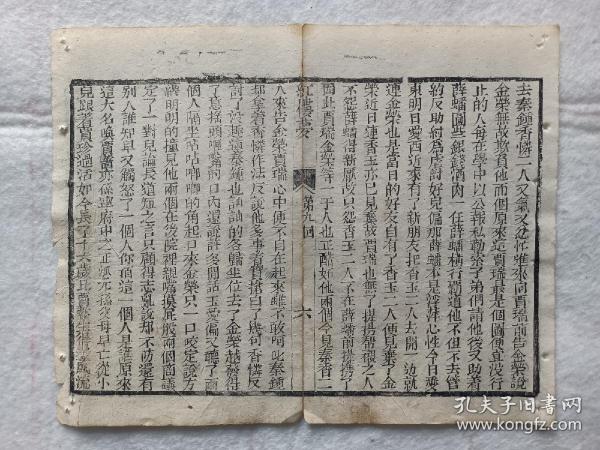 去秦鍾香憐二人又氣又忿忙進來向賈瑞前告金榮說
金榮無故欺負他兩個原來這賈瑞最是個圖便宜沒行
止的人每在學中以公報私勒索子弟們請他後又助着
薛蟠圖些銀錢酒肉一任薛蟠橫行霸道他不但不去管
約反助紂爲虐討好兒偏那薛蟠本是浮萍心性今日愛
東明日愛西近來有了新朋友把香玉二人丢開一边就
連金榮也是當日的好朋友自有了香玉二人便見棄了金
榮近日連香玉亦已見棄故賈瑞也無了提携幫襯之人
不怨薛蟠得新厭故只怨香玉二人不在薛蟠前提携了
因此賈瑞金榮等一干人也正醋妬他兩個今見秦香二
紅樓夢 第九回 六
人來告金榮賈瑞心中便不自在起來雖不敢呵叱秦鍾
却拿着香憐作法反說他多事着實搶白了幾句香憐反
討了沒趣連秦鍾也訕訕的各歸坐位去了金榮越發得
了意搖頭咂嘴的口内還說許多閒話玉愛偏又聽了兩
個人隔坐咕咕唧唧的角起口來金榮只一口咬定說方
纔明明的撞見他兩個在後院裡親嘴摸屁股兩個商議
定了一對兒論長道短之言只顧得志亂說却不防還有
別人誰知早又觸怒了一個人你道這一個人是誰原來
這人名喚賈薔亦係寧府中之正派元孫父母早亡從小
兒跟着賈珍過活如今長了十六歲比賈蓉生得還風流
孔夫子旧书网
www.kongfz.com